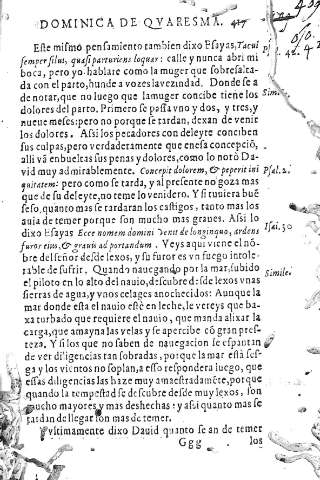 DOMINICA DE QVARESMA. 417
Este mismo pensamiento tambien dixo Esayas, Tacui
semper silui, quasi parturiens loquar: calle y nunca abri mi
boca, pero yo hablare como la muger que sobresalta-
da con el parto, hunde a vozes la vezindad. Donde se a
de notar, que no luego que la muger concibe tiene los
dolores del parto. Primero se passa vno y dos, y tres, y
nueue meses: pero no porque se tardan, dexan de venir
los dolores. Assi los pecadores con deleyte conciben
sus culpas, pero verdaderamente que en esa concepciõ,
alli vã enbueltas sus penas y dolores, como lo notò Da-
vid muy admirablemente. Concepit dolorem, & peperit ini
quitatem: pero como se tarda, y al presente no goza mas
que de su deleyte, no teme lo venidero. Y si tuviera buẽ
seso, quanto mas se tardaran los castigos, tanto mas los
auia de temer porque son mucho mas graues. Assi lo
dixo Esayas Ecce nomem domini venit de longinquo, ardens
furor eius, & grauis ad portandum. Veys aqui viene el nõ-
bre del señor desde lexos, y su furor es vn fuego intole-
rable de sufrir. Quando nauegando por la mar, subido
el piloto en lo alto del nauio, descubre desde lexos vnas
sierras de agua, y vnos celages anochecidos: Aunque la
mar donde esta el nauio estè en leche, le vereys que ba-
xa turbado que requiere el nauio, que manda alixar la
carga, que amayna las velas y se apercibe cõ gran pres-
teza. Y si los que no saben de nauegacion se espantan
de ver diligencias tan sobradas, porque la mar està ses-
ga y los vientos no soplan, a esso respondera luego, que
essas diligencias las haze muy amaestradamẽte, porque
quando la tempestad se descubre desde muy lexos, son
mucho mayores y mas deshechas: y assi quanto mas se
tardan de llegar son mas de temer.
Vvltimamente dixo Dauid quanto se an de temer
Ggg los
Simile.
Psal. 2.
Isai. 30
Simile.